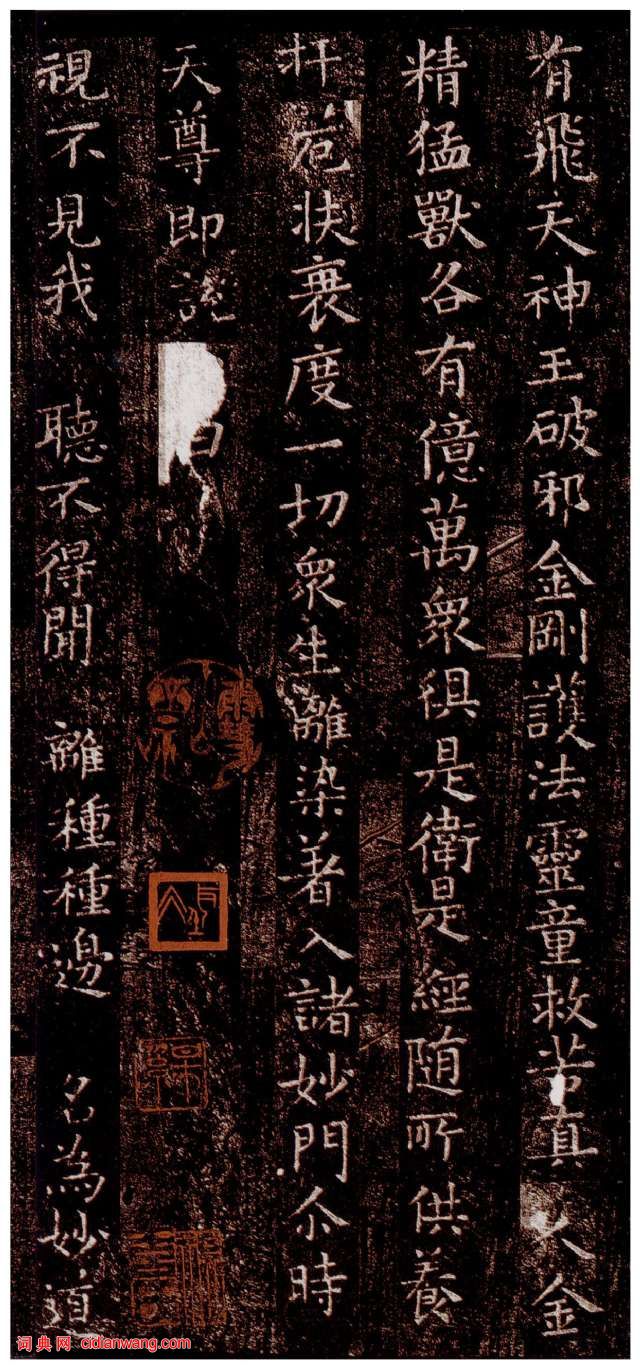 有飛天神王破邪金剛護法靈童救苦真人金
精猛獸各有億萬衆俱是衛是經随所供養
扞厄扶衰度一切衆生離染著入諸妙門尒時
天尊即說曰
視不見我 聽不得聞 離種種邊 名為妙道
词典网 cidianwang.com